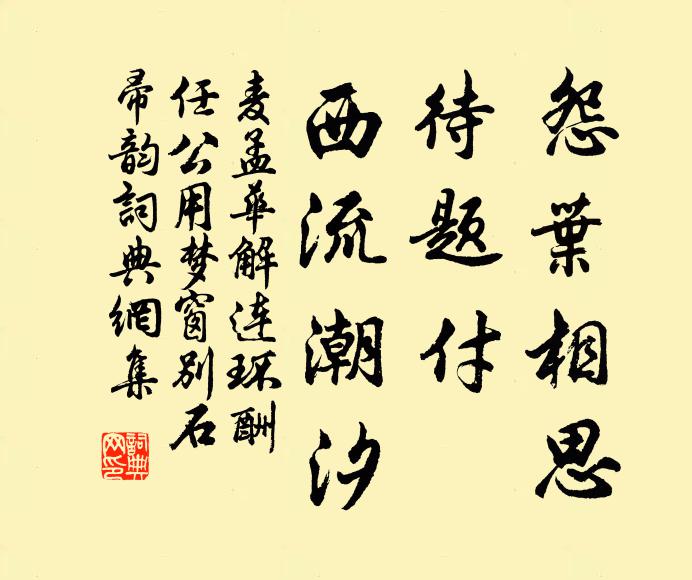 怨葉相思
待题付
西流潮汐
麦孟華解連环酬
任公用梦窗别石
帚韵詞典網集
詞典网印